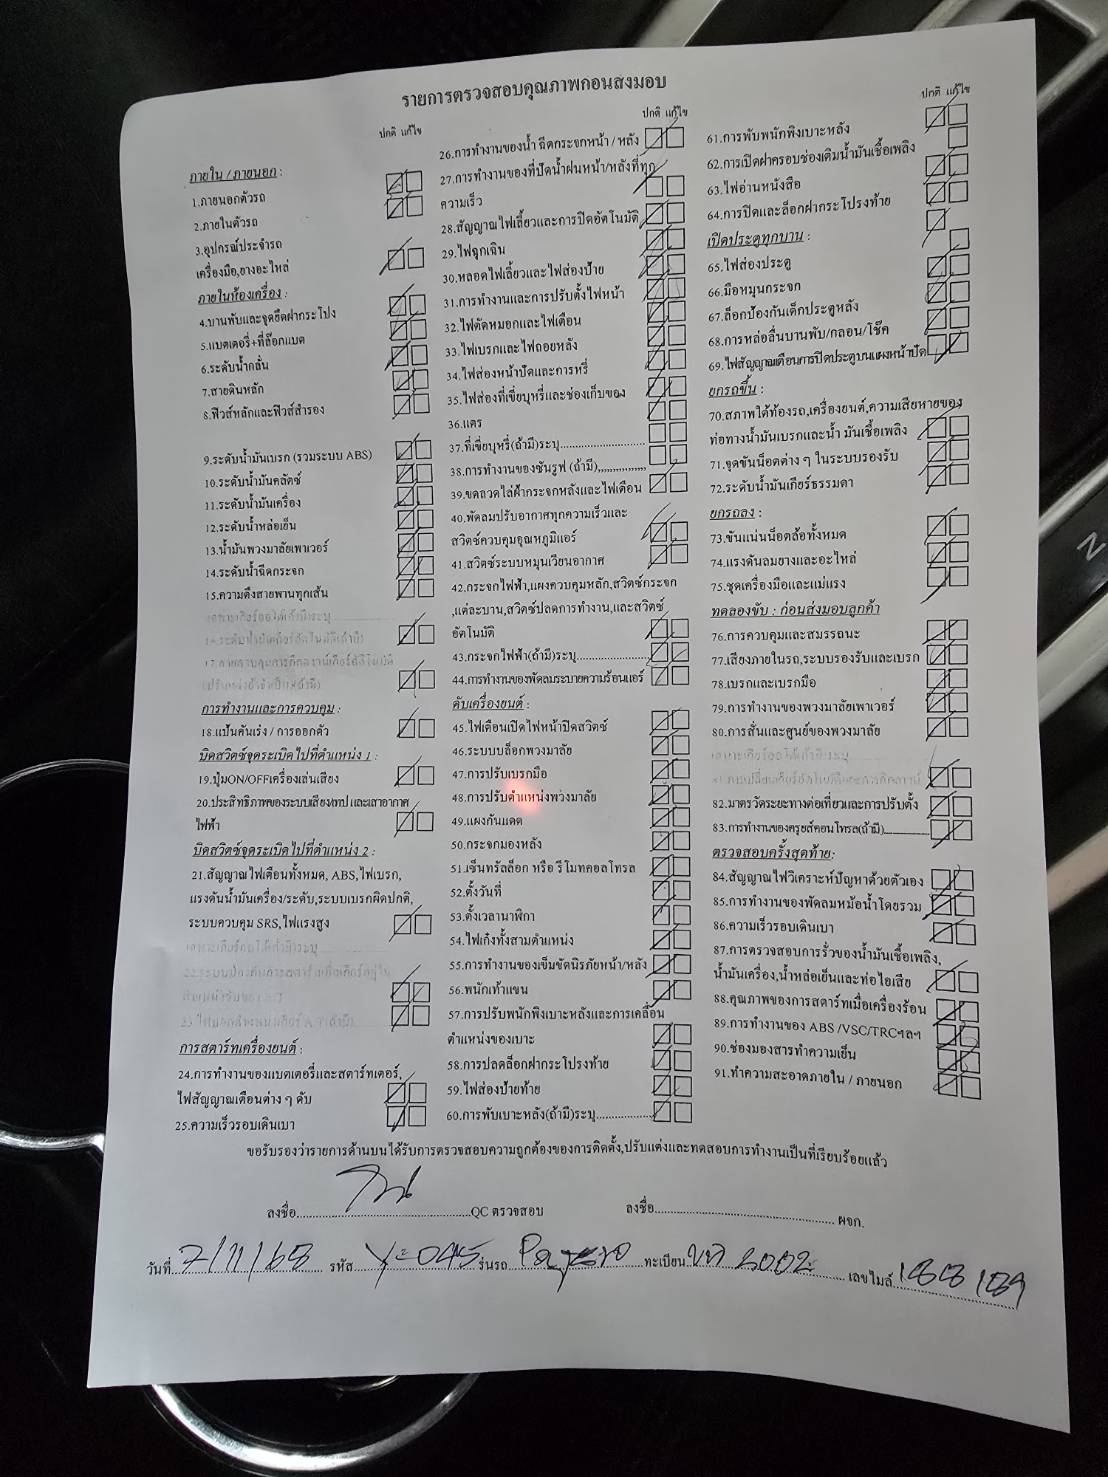 รายการตรวจสอบคุณภาพก่อนส่งมอบ
ปกติ แก้ไข
ภายใน / ภายนอก :
1.ภายนอกตัวรถ
2.ภายในตัวรถ
3.อุปกรณ์ประจำรถ
เครื่องมือ,ยางอะไหล่
ภายในห้องเครื่อง :
4.บานพับและจุดยึดฝากระโปง
5.แบตเตอรี่+ที่ล๊อกแบต
6.ระดับน้ำกลั่น
7.สายดินหลัก
8.ฟิวส์หลักและฟิวส์สำรอง
9.ระดับน้ำมันเบรก (รวมระบบ ABS)
10.ระดับน้ำมันคลัตช์
11.ระดับน้ำมันเครื่อง
12.ระดับน้ำหล่อเย็น
13.น้ำมันพวงมาลัยเพาเวอร์
14.ระดับน้ำฉีดกระจก
15.ความตึงสายพานทุกเส้น
การทำงานและการควบคุม :
18.แป้นคันเร่ง / การออกตัว
บิดสวิตซ์จุดระเบิดไปที่ตำแหน่ง 1 :
19.ปุ่มON/OFFเครื่องเล่นเสียง
20.ประสิทธิภาพของระบบเสียง/เทป และเสาอากาศ
ไฟฟ้า
บิดสวิตซ์จุดระเบิดไปที่ตำแหน่ง 2 :
21.สัญญาณไฟเตือนทั้งหมด, ABS,ไฟเบรก,
แรงดันน้ำมันเครื่อง/ระดับ,ระบบเบรกผิดปกติ,
ระบบควบคุม SRS,ไฟแรงสูง
การสตาร์ทเครื่องยนต์ :
24.การทำงานของแบตเตอรี่และสตาร์ทเตอร์,
ไฟสัญญาณเตือนต่าง ๆ ดับ
25.ความเร็วรอบเดินเบา
ปกติ แก้ไข
26.การทำงานของน้ำ ฉีดกระจกหน้า / หลัง
27.การทำงานของที่ปัดน้ำฝนหน้า/หลังที่ทุก
ความเร็ว
28.สัญญาณไฟเลี้ยวและการปิดอัตโนมัติ
29.ไฟฉุกเฉิน
30.หลอดไฟเลี้ยวและไฟส่องป้าย
31.การทำงานและการปรับตั้งไฟหน้า
32.ไฟตัดหมอกและไฟเตือน
33.ไฟเบรกและไฟถอยหลัง
34.ไฟส่องหน้าปัดและการหรี่
35.ไฟส่องที่เขี่ยบุหรี่และช่องเก็บของ
36.แตร
37.ที่เขี่ยบุหรี่(ถ้ามี)ระบุ
38.การทำงานของซันรูฟ (ถ้ามี)
39.ขดลวดไล่ฝ้ากระจกหลังและไฟเตือน
40.พัดลมปรับอากาศทุกความเร็วและ
สวิตซ์ควบคุมอุณหภูมิแอร์
41.สวิตซ์ระบบหมุนเวียนอากาศ
42.กระจกไฟฟ้า,แผงควบคุมหลัก,สวิตซ์กระจก
,แต่ละบาน,สวิตซ์ปลดการทำงาน,และสวิตซ์
อัตโนมัติ
43.กระจกไฟฟ้า(ถ้ามี)ระบุ
44.การทำงานของพัดลมระบายความร้อนแอร์
ดับเครื่องยนต์ :
45.ไฟเตือนเปิดไฟหน้าปิดสวิตซ์
46.ระบบบล็อกพวงมาลัย
47.การปรับเบรกมือ
48.การปรับตำแหน่งพวงมาลัย
49.แผงกันแดด
50.กระจกมองหลัง
51.เซ็นทรัลล็อก หรือ รีโมทคอลโทรล
52.ตั้งวันที่
53.ตั้งเวลานาฬิกา
54.ไฟเก๋งทั้งสามตำแหน่ง
55.การทำงานของเข็มขัดนิรภัยหน้า/หลัง
56.พนักเท้าแขน
57.การปรับพนักพิงเบาะหลังและการเคลื่อน
ตำแหน่งของเบาะ
58.การปลดล็อกฝากระโปรงท้าย
59.ไฟส่องป้ายท้าย
60.การพับเบาะหลัง(ถ้ามี)ระบุ
ปกติ แก้ไข
61.การพับพนักพิงเบาะหลัง
62.การเปิดฝาครอบช่องเติมน้ำมันเชื้อเพลิง
63.ไฟอ่านหนังสือ
64.การปิดและล็อกฝากระโปรงท้าย
เปิดประตูทุกบาน :
65.ไฟส่องประตู
66.มือหมุนกระจก
67.ล็อกป้องกันเด็กประตูหลัง
68.การหล่อลื่นบานพับ/กลอน/โช๊ค
69.ไฟสัญญาณเตือนการปิดประตูบนแผงหน้าปัด
ยกรถขึ้น :
70.สภาพใต้ท้องรถ,เครื่องยนต์,ความเสียหายของ
ท่อทางน้ำมันเบรกและน้ำ มันเชื้อเพลิง
71.จุดขันน็อตต่าง ๆ ในระบบรองรับ
72.ระดับน้ำมันเกียร์ธรรมดา
ยกรถลง :
73.ขันแน่นน็อตล้อทั้งหมด
74.แรงดันลมยางและอะไหล่
75.ชุดเครื่องมือและแม่แรง
ทดลองขับ : ก่อนส่งมอบลูกค้า
76.การควบคุมและสมรรถนะ
77.เสียงภายในรถ,ระบบรองรับและเบรก
78.เบรกและเบรกมือ
79.การทำงานของพวงมาลัยเพาเวอร์
80.การสั่นและศูนย์ของพวงมาลัย
82.มาตรวัดระยะทางต่อเที่ยวและการปรับตั้ง
83.การทำงานของครูยส์คอนโทรล(ถ้ามี)
ตรวจสอบครั้งสุดท้าย:
84.สัญญาณไฟวิเคราะห์ปัญหาด้วยตัวเอง
85.การทำงานของพัดลมหม้อน้ำโดยรวม
86.ความเร็วรอบเดินเบา
87.การตรวจสอบการรั่วของน้ำมันเชื้อเพลิง,
น้ำมันเครื่อง,น้ำหล่อเย็นและท่อไอเสีย
88.คุณภาพของการสตาร์ทเมื่อเครื่องร้อน
89.การทำงานของ ABS /VSC/TRCฯลฯ
90.ช่องมองสารทำความเย็น
91.ทำความสะอาดภายใน / ภายนอก
ขอรับรองว่ารายการด้านบนได้รับการตรวจสอบความถูกต้องของการติดตั้ง,ปรับแต่งและทดสอบการทำงานเป็นที่เรียบร้อยแล้ว
ลงชื่อ QC ตรวจสอบ ลงชื่อ ผจก.
วันที่ 7/11/68 รหัส Y-045 รุ่นรถ Pajero ทะเบียน เลขไมล์ 188189
N